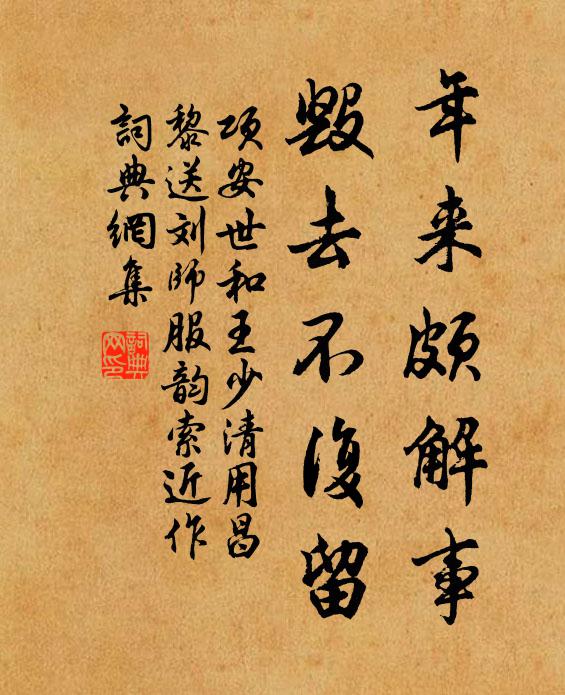 年来颇解事
毁去不复留
项安世和王少清用昌
黎送刘师服韵索近作
词典网集
词典网印